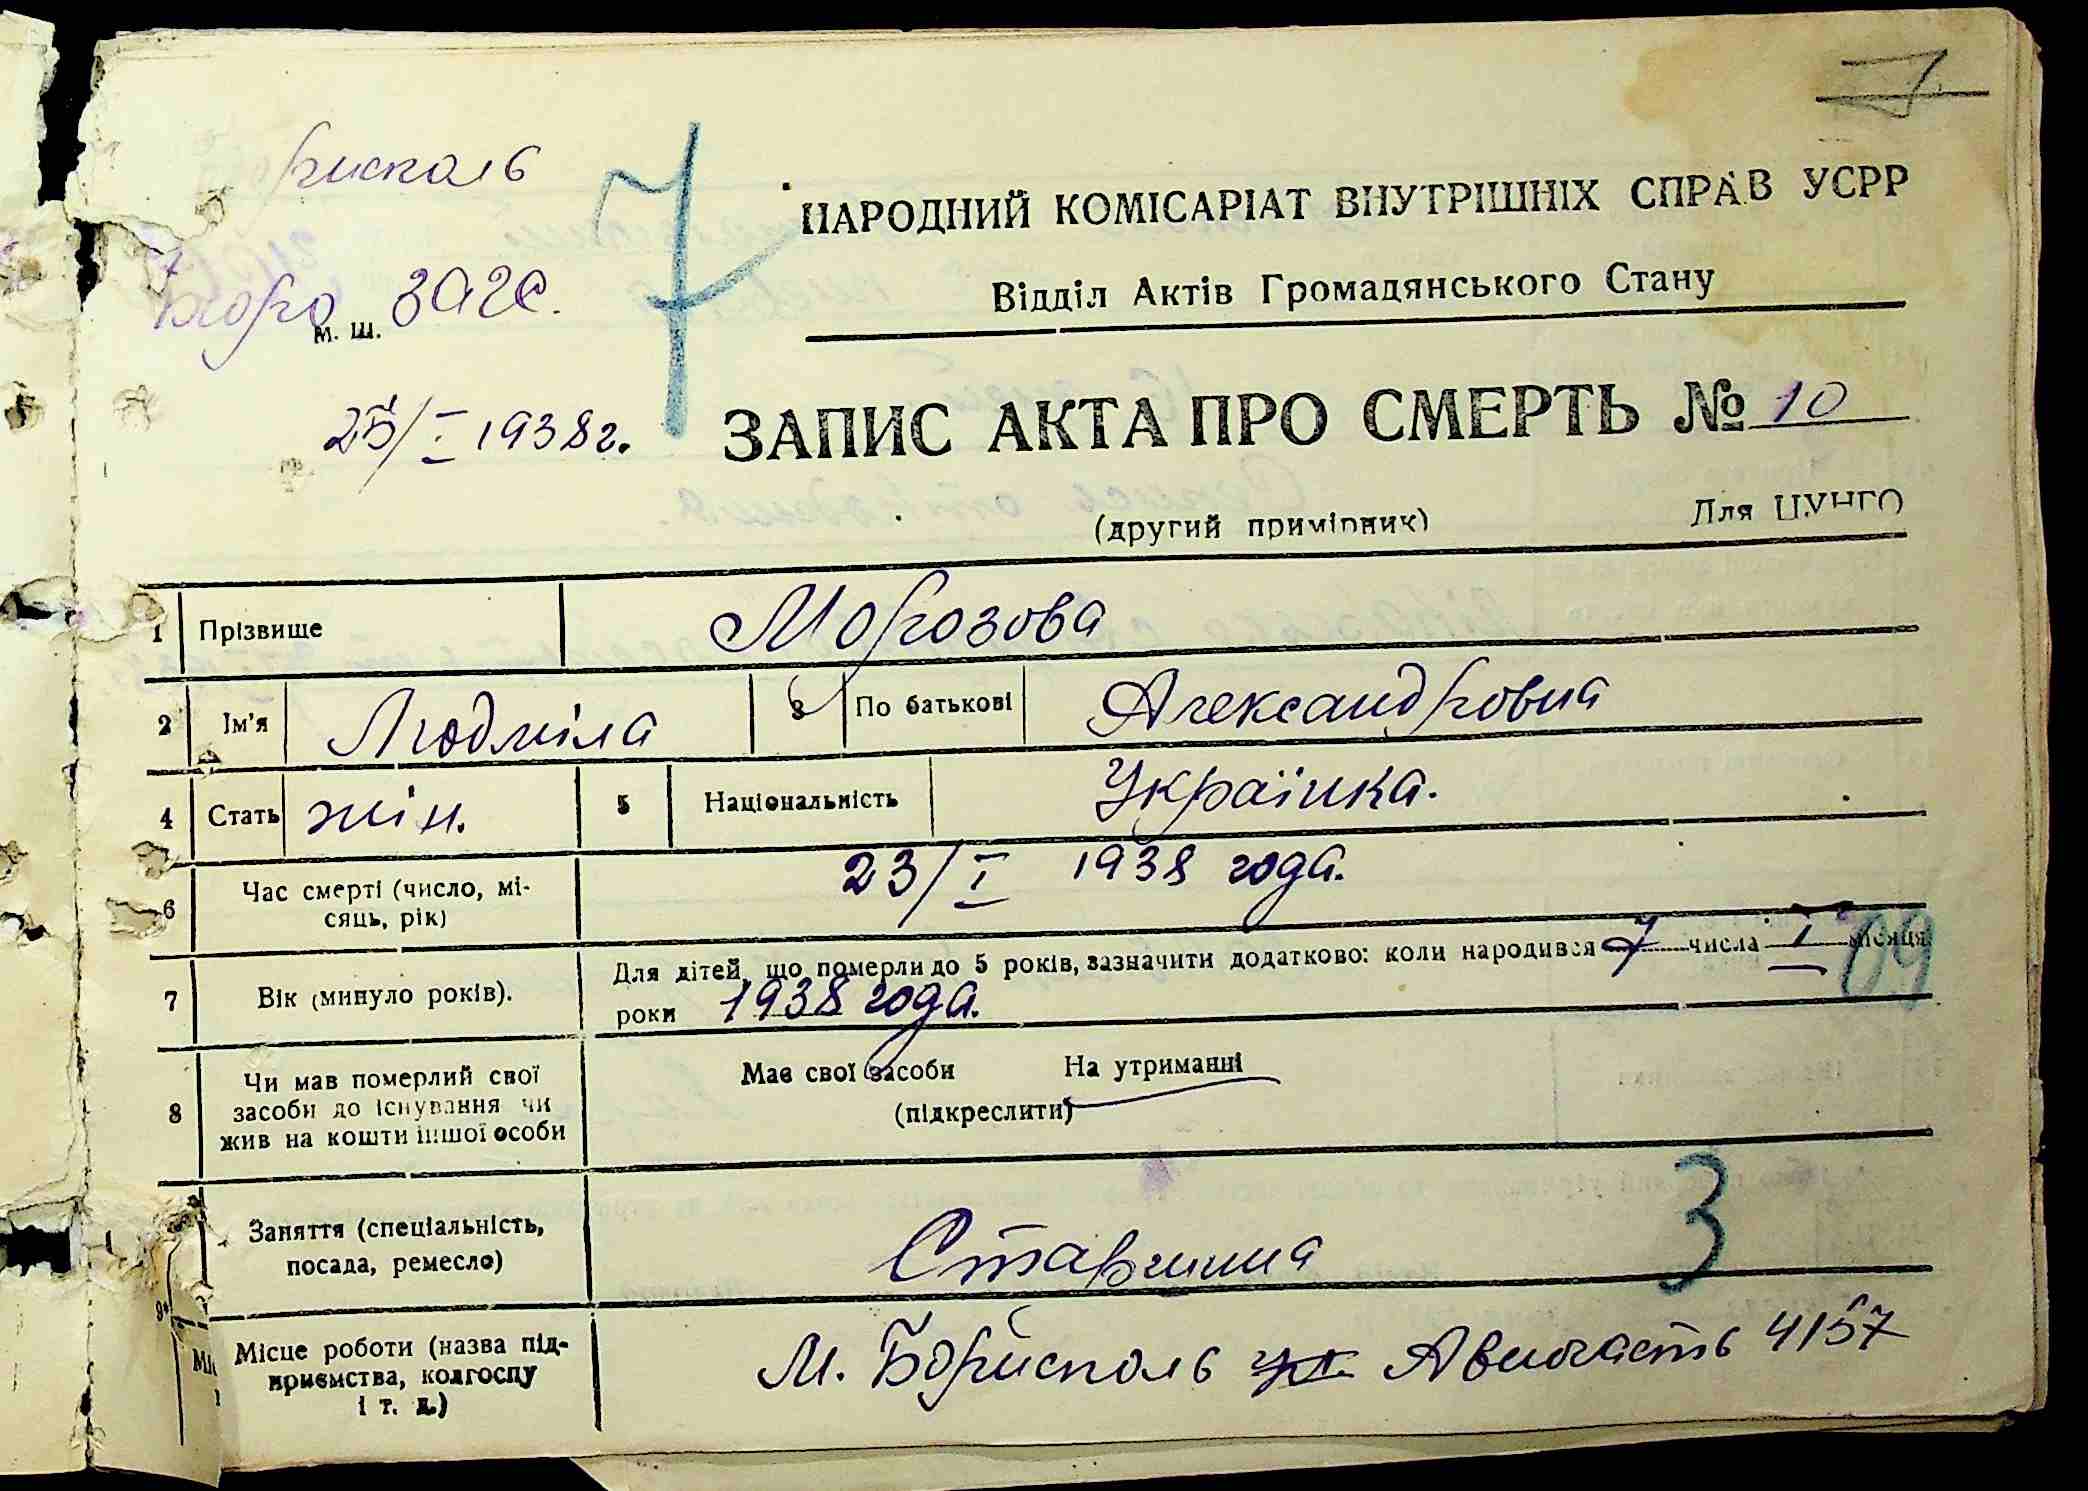 7
рисполь
7
Бюро ЗАГС.
м. ш.
25/I 1938г.
НАРОДНИЙ КОМІСАРІАТ ВНУТРІШНІХ СПРАВ УСРР
Відділ Актів Громадянського Стану
ЗАПИС АКТА ПРО СМЕРТЬ № 10
(другий примірник) Для ЦУНГО
1 Прізвище Морозова
2 Ім'я Людміла 3 По батькові Александровна
4 Стать жін. 5 Національність Українка.
6 Час смерті (число, мі-
сяць, рік) 23/I 1938 года.
7 Вік (минуло років). Для дітей, що померли до 5 років, зазначити додатково: коли народився 7 числа I місяця
роки 1938 года.
09
8 Чи мав померлий свої
засоби до існування чи
жив на кошти іншої особи
Має свої засоби На утриманні
(підкреслити)
9 Заняття (спеціальність,
посада, ремесло) Старшина
3
Місце роботи (назва під-
приємства, колгоспу
і т. д.) М. Борисполь Авиочасть 4157